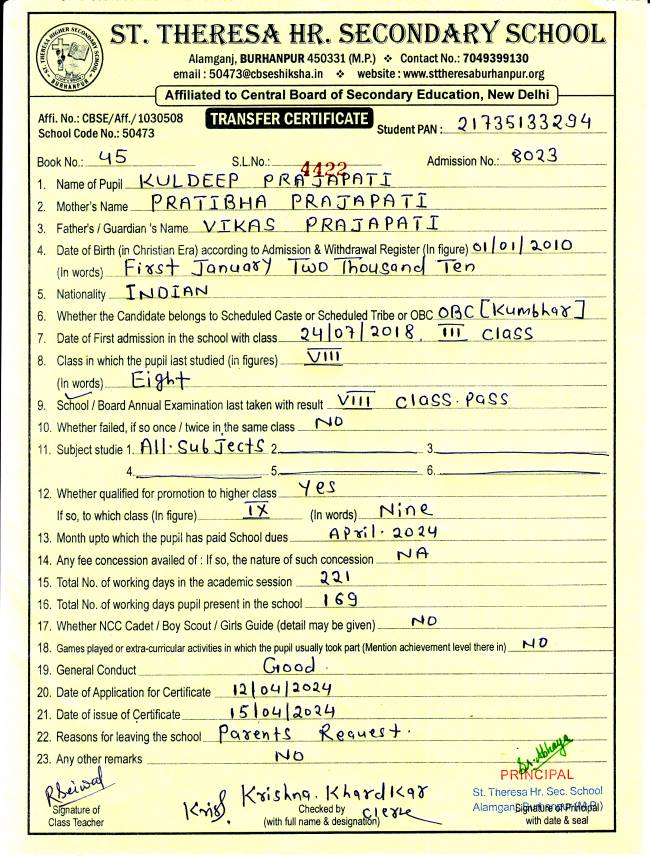 ST. THERESA HIGHER SECONDARY SCHOOL
BURHANPUR
ST. THERESA HR. SECONDARY SCHOOL
Alamganj, BURHANPUR 450331 (M.P.) ❖ Contact No.: 7049399130
email : 50473@cbseshiksha.in ❖ website : www.sttheresaburhanpur.org
Affiliated to Central Board of Secondary Education, New Delhi
Affi. No.: CBSE/Aff./1030508
School Code No.: 50473
TRANSFER CERTIFICATE
Student PAN : 21735133294
Book No.: 45 S.L.No.: 4422 Admission No.: 8023
1. Name of Pupil KULDEEP PRAJAPATI
2. Mother's Name PRATIBHA PRAJAPATI
3. Father's / Guardian 's Name VIKAS PRAJAPATI
4. Date of Birth (in Christian Era) according to Admission & Withdrawal Register (In figure) 01/01/2010
(In words) First January Two Thousand Ten
5. Nationality INDIAN
6. Whether the Candidate belongs to Scheduled Caste or Scheduled Tribe or OBC OBC [Kumbhar]
7. Date of First admission in the school with class 24/07/2018, III class
8. Class in which the pupil last studied (in figures) VIII
(In words) Eight
9. School / Board Annual Examination last taken with result VIII class. pass
10. Whether failed, if so once / twice in the same class NO
11. Subject studie 1. All. Subjects 2. 3.
4. 5. 6.
12. Whether qualified for promotion to higher class Yes
If so, to which class (In figure) IX (In words) Nine
13. Month upto which the pupil has paid School dues April. 2024
14. Any fee concession availed of : If so, the nature of such concession NA
15. Total No. of working days in the academic session 221
16. Total No. of working days pupil present in the school 169
17. Whether NCC Cadet / Boy Scout / Girls Guide (detail may be given) NO
18. Games played or extra-curricular activities in which the pupil usually took part (Mention achievement level there in) NO
19. General Conduct Good.
20. Date of Application for Certificate 12/04/2024
21. Date of issue of Certificate 15/04/2024
22. Reasons for leaving the school Parents Request.
23. Any other remarks NO
Sr. Abhaya
PRINCIPAL
St. Theresa Hr. Sec. School
Alamganj, Burhanpur (M.P.)
Krishna. Khardkar
Clerk
Signature of
Class Teacher
Checked by
(with full name & designation)
Signature of Principal
with date & seal